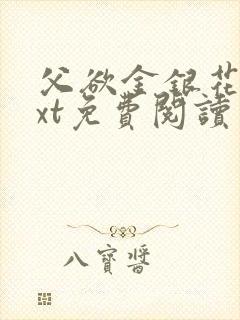 父欲金銀花
xt免費閱讀
八寶醬